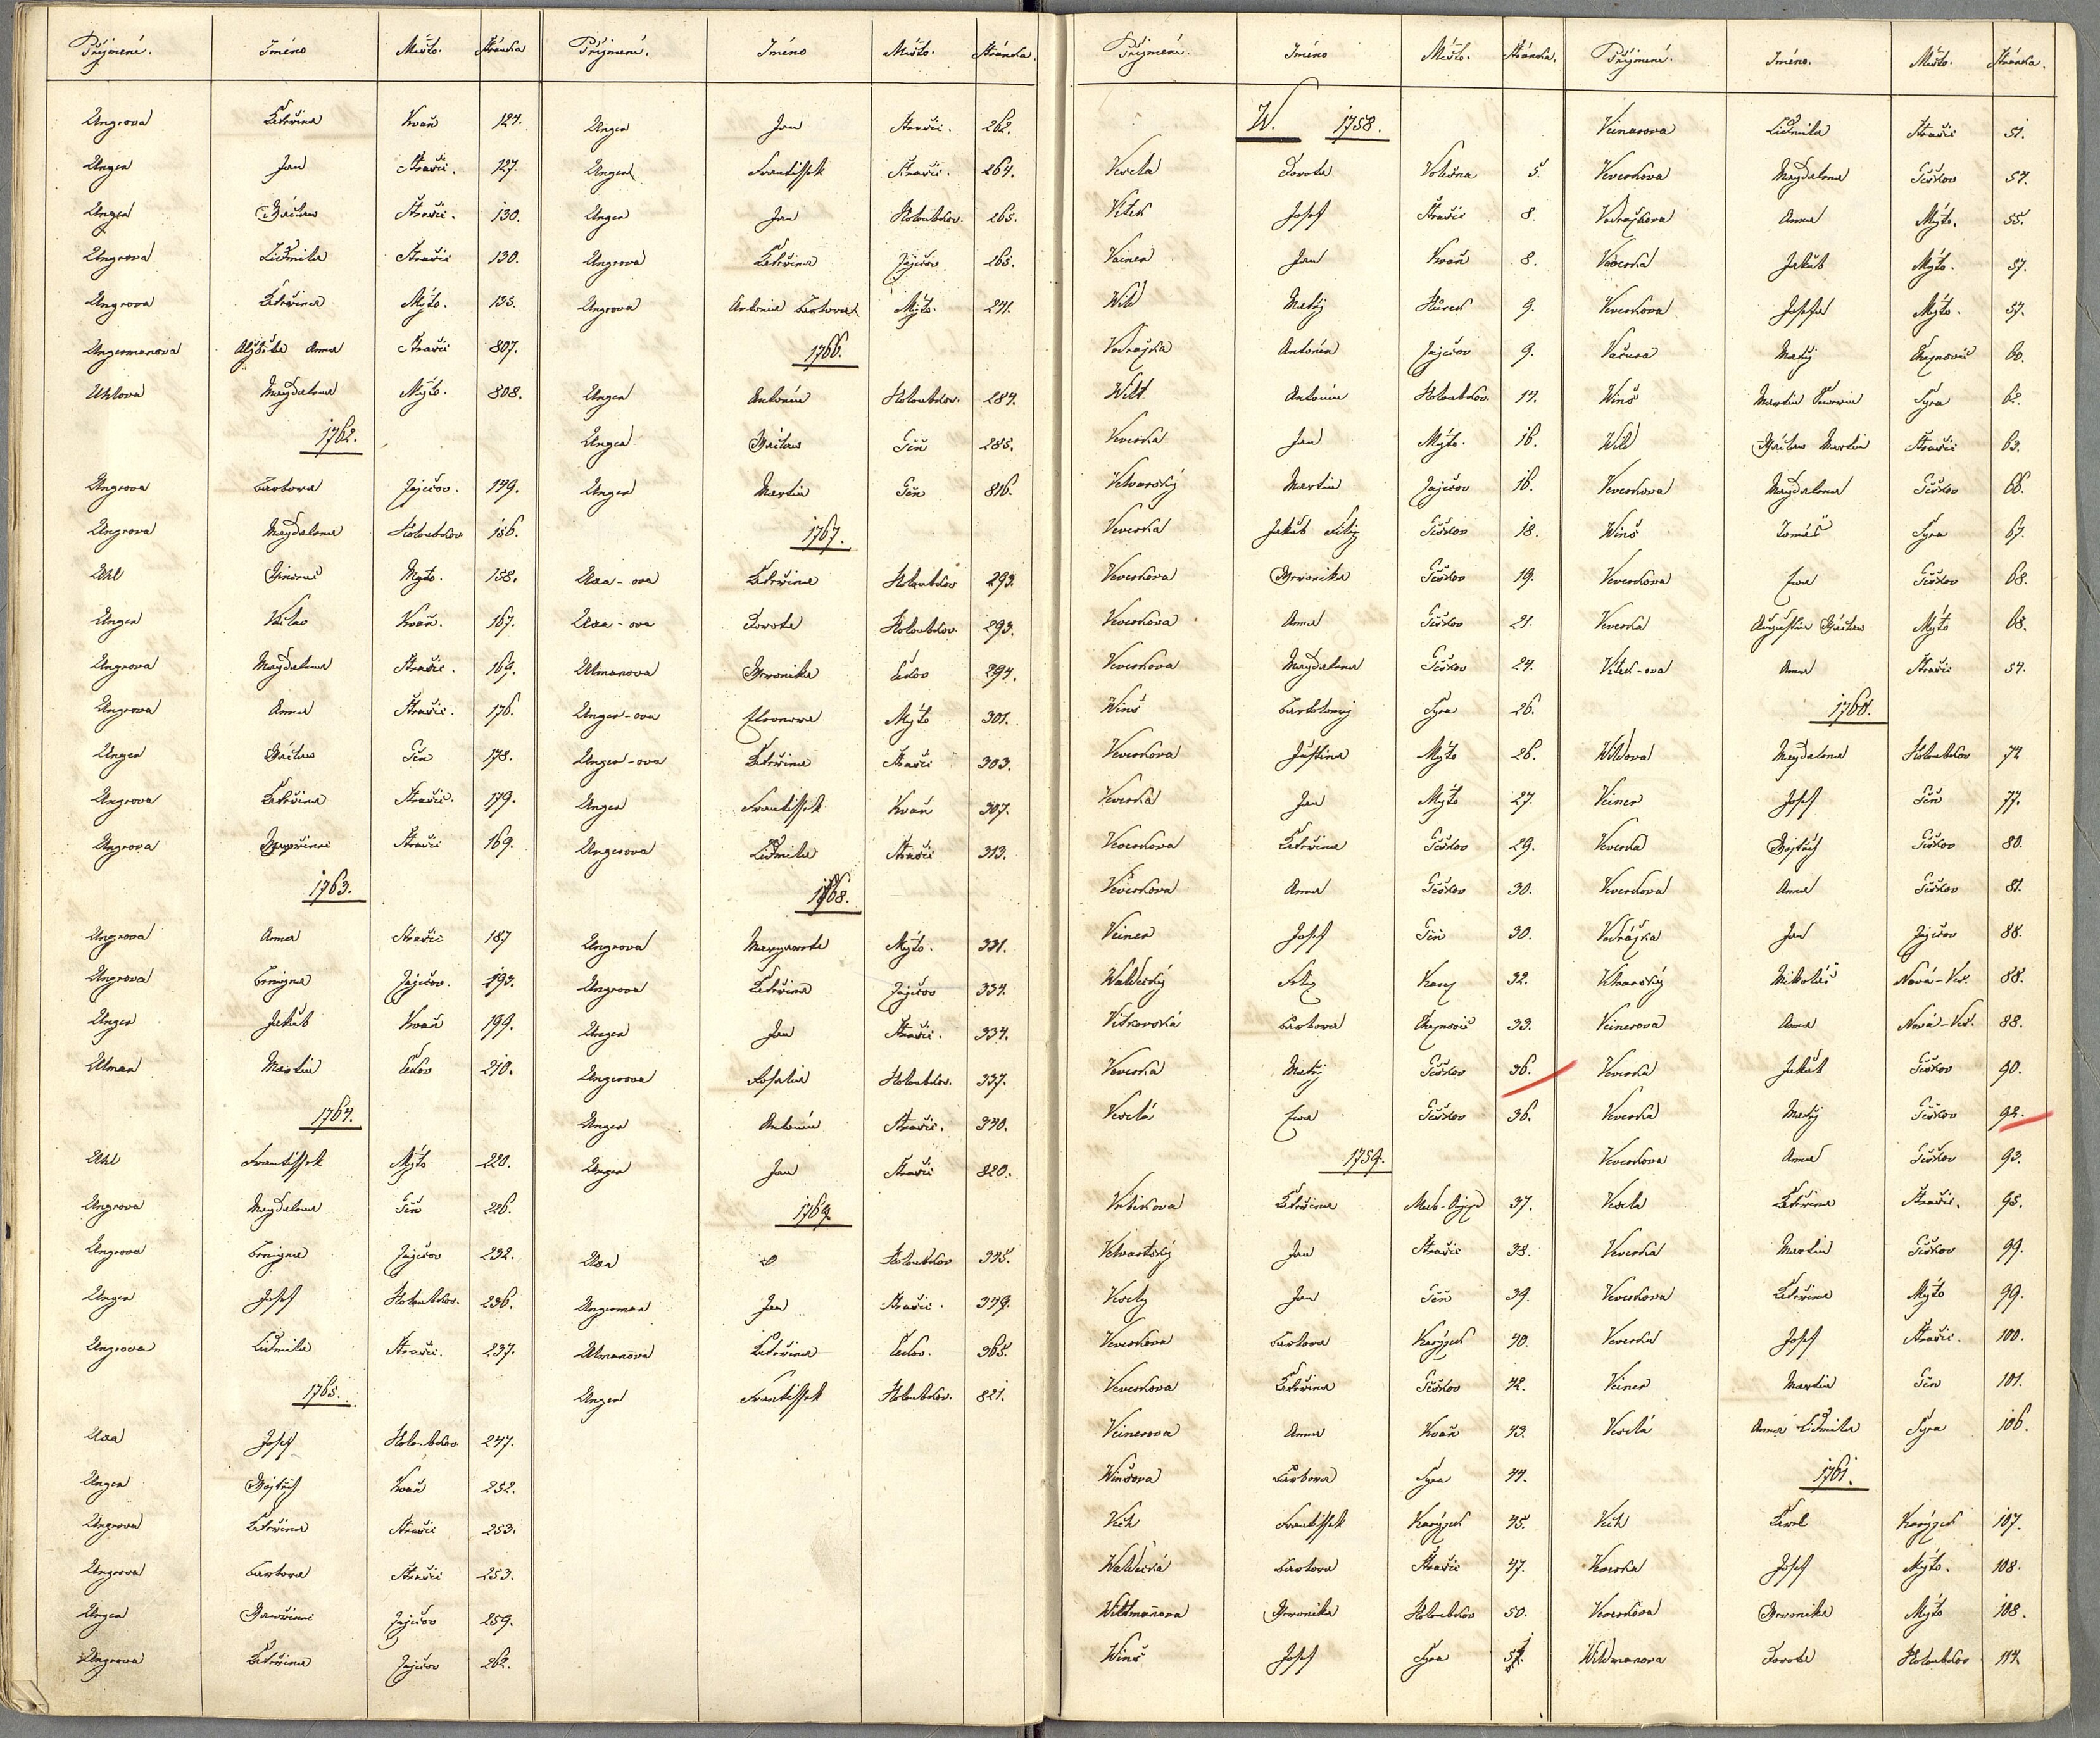 Příjmení. Jméno Místo. Stránka
Ungrova Kateřina Kvaň 124.
Unger Jan Strašic. 127.
Unger Václav Strašic. 130.
Ungrova Lidmila Strašic 130.
Ungrova Kateřina Mýto. 135.
Ungermanova Alžběta Anna Strašic 807.
Uhlova Magdalena Mýto. 808.
1762.
Ungrova Barbora Zaječov. 149.
Ungrova Magdalena Holoubkov 156.
Uhl Mýto. 158.
Unger Václav Kvaň. 167.
Ungrova Magdalena Strašic. 169.
Ungrova Anna Strašic. 176.
Unger Václav Těn 178.
Ungrova Kateřina Strašic. 179.
Ungrova Strašic 169.
1763.
Ungrova Anna Strašic 187
Ungrova Zaječov. 193.
Unger Jakub Kvaň 199.
Ulman Martin 210.
1764.
Uhl Frantissek Mýto 220.
Ungrova Magdalena Těn 226.
Ungrova Zaječov 232.
Unger Josef Holoubkov. 236.
Ungrova Lidmila Strašic. 237.
1765.
Uxa Josef Holoubkov 247.
Unger Vojtěch Kvaň 252.
Ungrova Kateřina Strašic 253.
Ungrova Barbora Strašic 253.
Unger Zaječov 259.
Ungrova Kateřina Zaječov 262.
Příjmení. Jméno Místo. Stránka.
Unger Jan Strašic. 262.
Unger Frantissek Strašic. 264.
Unger Jan Holoubkov. 265.
Ungrova Kateřina Zaječov 265.
Ungrova Antonie Barbora Mýto. 271.
1766.
Unger Antonín Holoubkov. 284.
Unger Václav Těň 285.
Unger Martin Těň 816.
1767.
Uxa-ova Kateřina Holoubkov 293.
Uxa-ova Dorota Holoubkov. 293.
Ulmanova Weronika 294.
Unger-ova Eleonora Mýto 301.
Unger-ova Kateřina Strašic 303.
Unger Frantissek Kvaň 307.
Ungerova Lidmila Strašic 313.
1768.
Ungrova Margareta Mýto. 331.
Ungrova Kateřina Zaječov 334.
Unger Jan Strašic. 334.
Ungerova Rosalie Holoubkov. 337.
Unger Antonín Strašic. 340.
Unger Jan Strašic 820.
1769
Uxa Holoubkov 345.
Ungerman Jan Strašic. 349.
Ulmanova Kateřina 365.
Unger Frantissek Holoubkov. 821.
Příjmení. Jméno Místo. Stránka.
W. 1758.
Vesela Dorota Volešna 5.
Vítek Josef Strašic 8.
Vainer Jan Kvaň 8.
Wild Matěj Hůrek 9.
Vodražka Antonín Zaječov 9.
Wilt Antonín Holoubkov. 14.
Veverka Jan Mýto. 16.
Velvarský Martin Zaječov 16.
Veverka Jakub Filip Těškov 18.
Veverkova Weronika Těškov 19.
Veverkova Anna Těškov 21.
Veverkova Magdalena Těškov 24.
Winš Bartolomej Syra 26.
Veverkova Justina Mýto 26.
Veverka Jan Mýto 27.
Veverkova Kateřina Těškov 29.
Veverkova Anna Těškov 30.
Veiner Josef Těň 30.
Waldecký Filip 32.
Vítkovská Barbora Chejnovic 33.
Veverka Matěj Těškov 36.
Veselá Ewa Těškov 36.
1759.
Vrbickova Kateřina 37.
Velvartský Jan Strašic 38.
Veselý Jan Těň 39.
Veverkova Barbora Karýzek 40.
Veverkova Kateřina Těškov 42.
Veinerova Anna Kvaň 43.
Winšova Barbora Syra 44.
Veith Frantissek Karýzek 45.
Waldecká Barbora Strašic 47.
Wildmanova Weronika Holoubkov 50.
Winš Josef Syra 51.
Příjmení. Jméno. Místo. Stránka.
Veinarova Lidmila Strašic 51.
Veverkova Magdalena Těškov 54.
Vodražkova Anna Mýto. 55.
Veverka Jakub Mýto. 57.
Veverkova Josefa Mýto. 57.
Vačura Matěj Chejnovic 60.
Winš Martin Syra 62.
Wild Václav Martin Strašic 63.
Veverkova Magdalena Těškov 66.
Winš Tomáš Syra 67.
Veverkova Ewa Těškov 68.
Veverka Augustin Václav Mýto 68.
Vítek-ova Anna Strašic 54.
1760.
Wildova Magdalena Holoubkov 74
Veiner Josef Těň 77.
Veverka Vojtěch Těškov 80.
Veverkova Anna Těškov 81.
Vodrážka Jan Zaječov 88.
Velvarský Mikoláš Nová-Ves. 88.
Veinerova Anna Nová-Ves. 88.
Veverka Jakub Těškov 90.
Veverka Matěj Těškov 92.
Veverkova Anna Těškov 93.
Vesela Kateřina Strašic. 95.
Veverka Martin Těškov 99.
Veverkova Kateřina Mýto 99.
Veverka Josef Strašic. 100.
Veiner Martin Těn 101.
Veselá Anna Lidmila Syra 106.
1761.
Veith Karel Karýzek 107.
Veverka Josef Mýto. 108.
Veverkova Weronika Mýto 108.
Wildmanova Dorota Holoubkov 114.